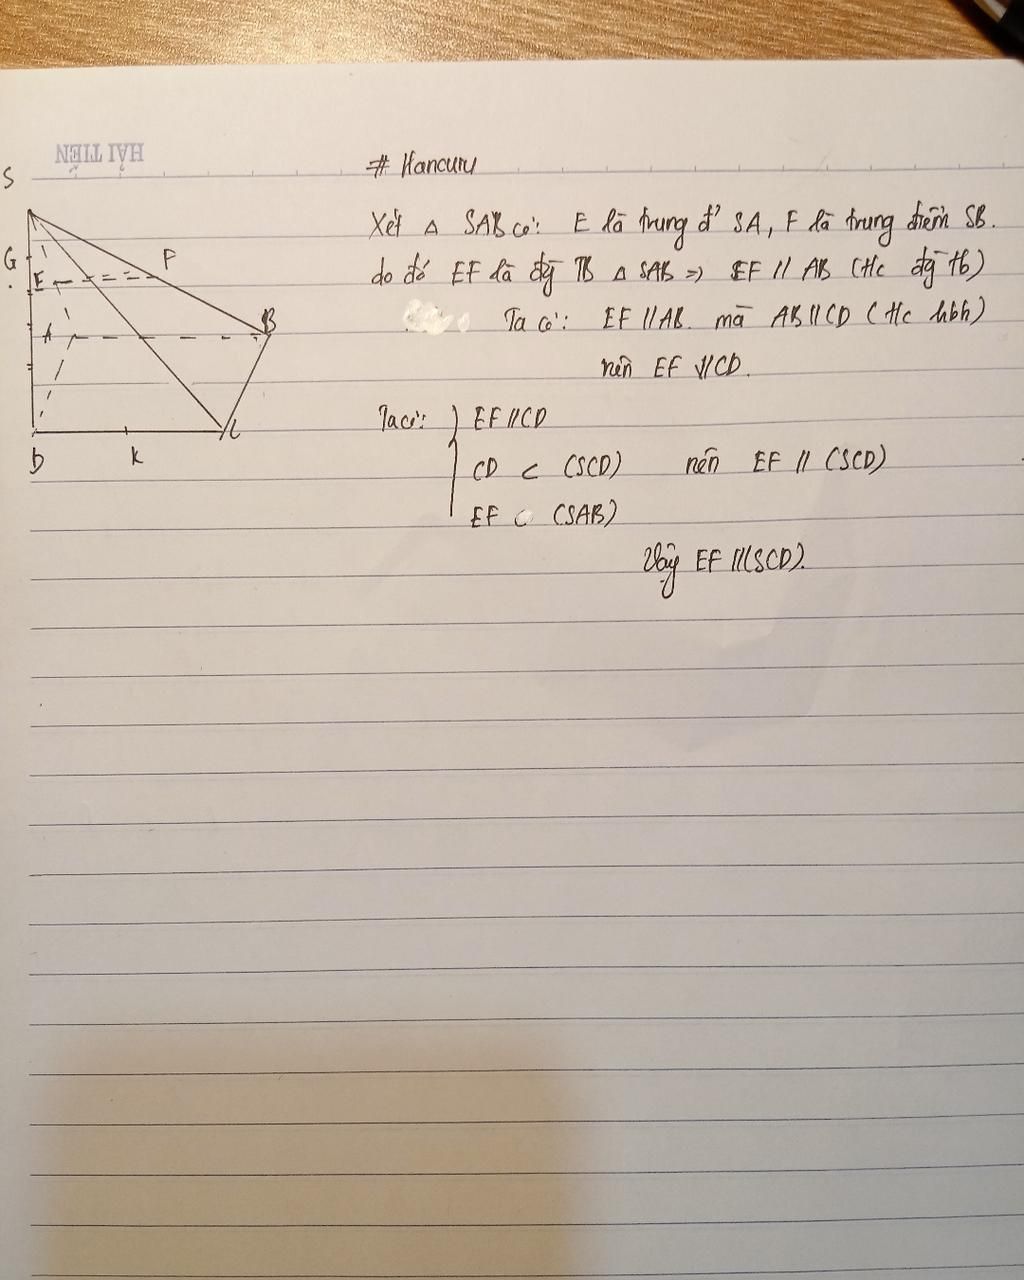 HẢI TIẾN
# Hancuru
S
G
E
F
A
B
D
K
C
Xét △ SAB có: E là trung đ' SA, F là trung điểm SB.
do đó EF là đg TB △ SAB => EF // AB (t/c đg tb)
Ta có: EF // AB. mà AB // CD (t/c hbh)
nên EF // CD.
Ta có: EF // CD
CD ⊂ (SCD) nên EF // (SCD)
EF ⊂ (SAB)
Vậy EF // (SCD).